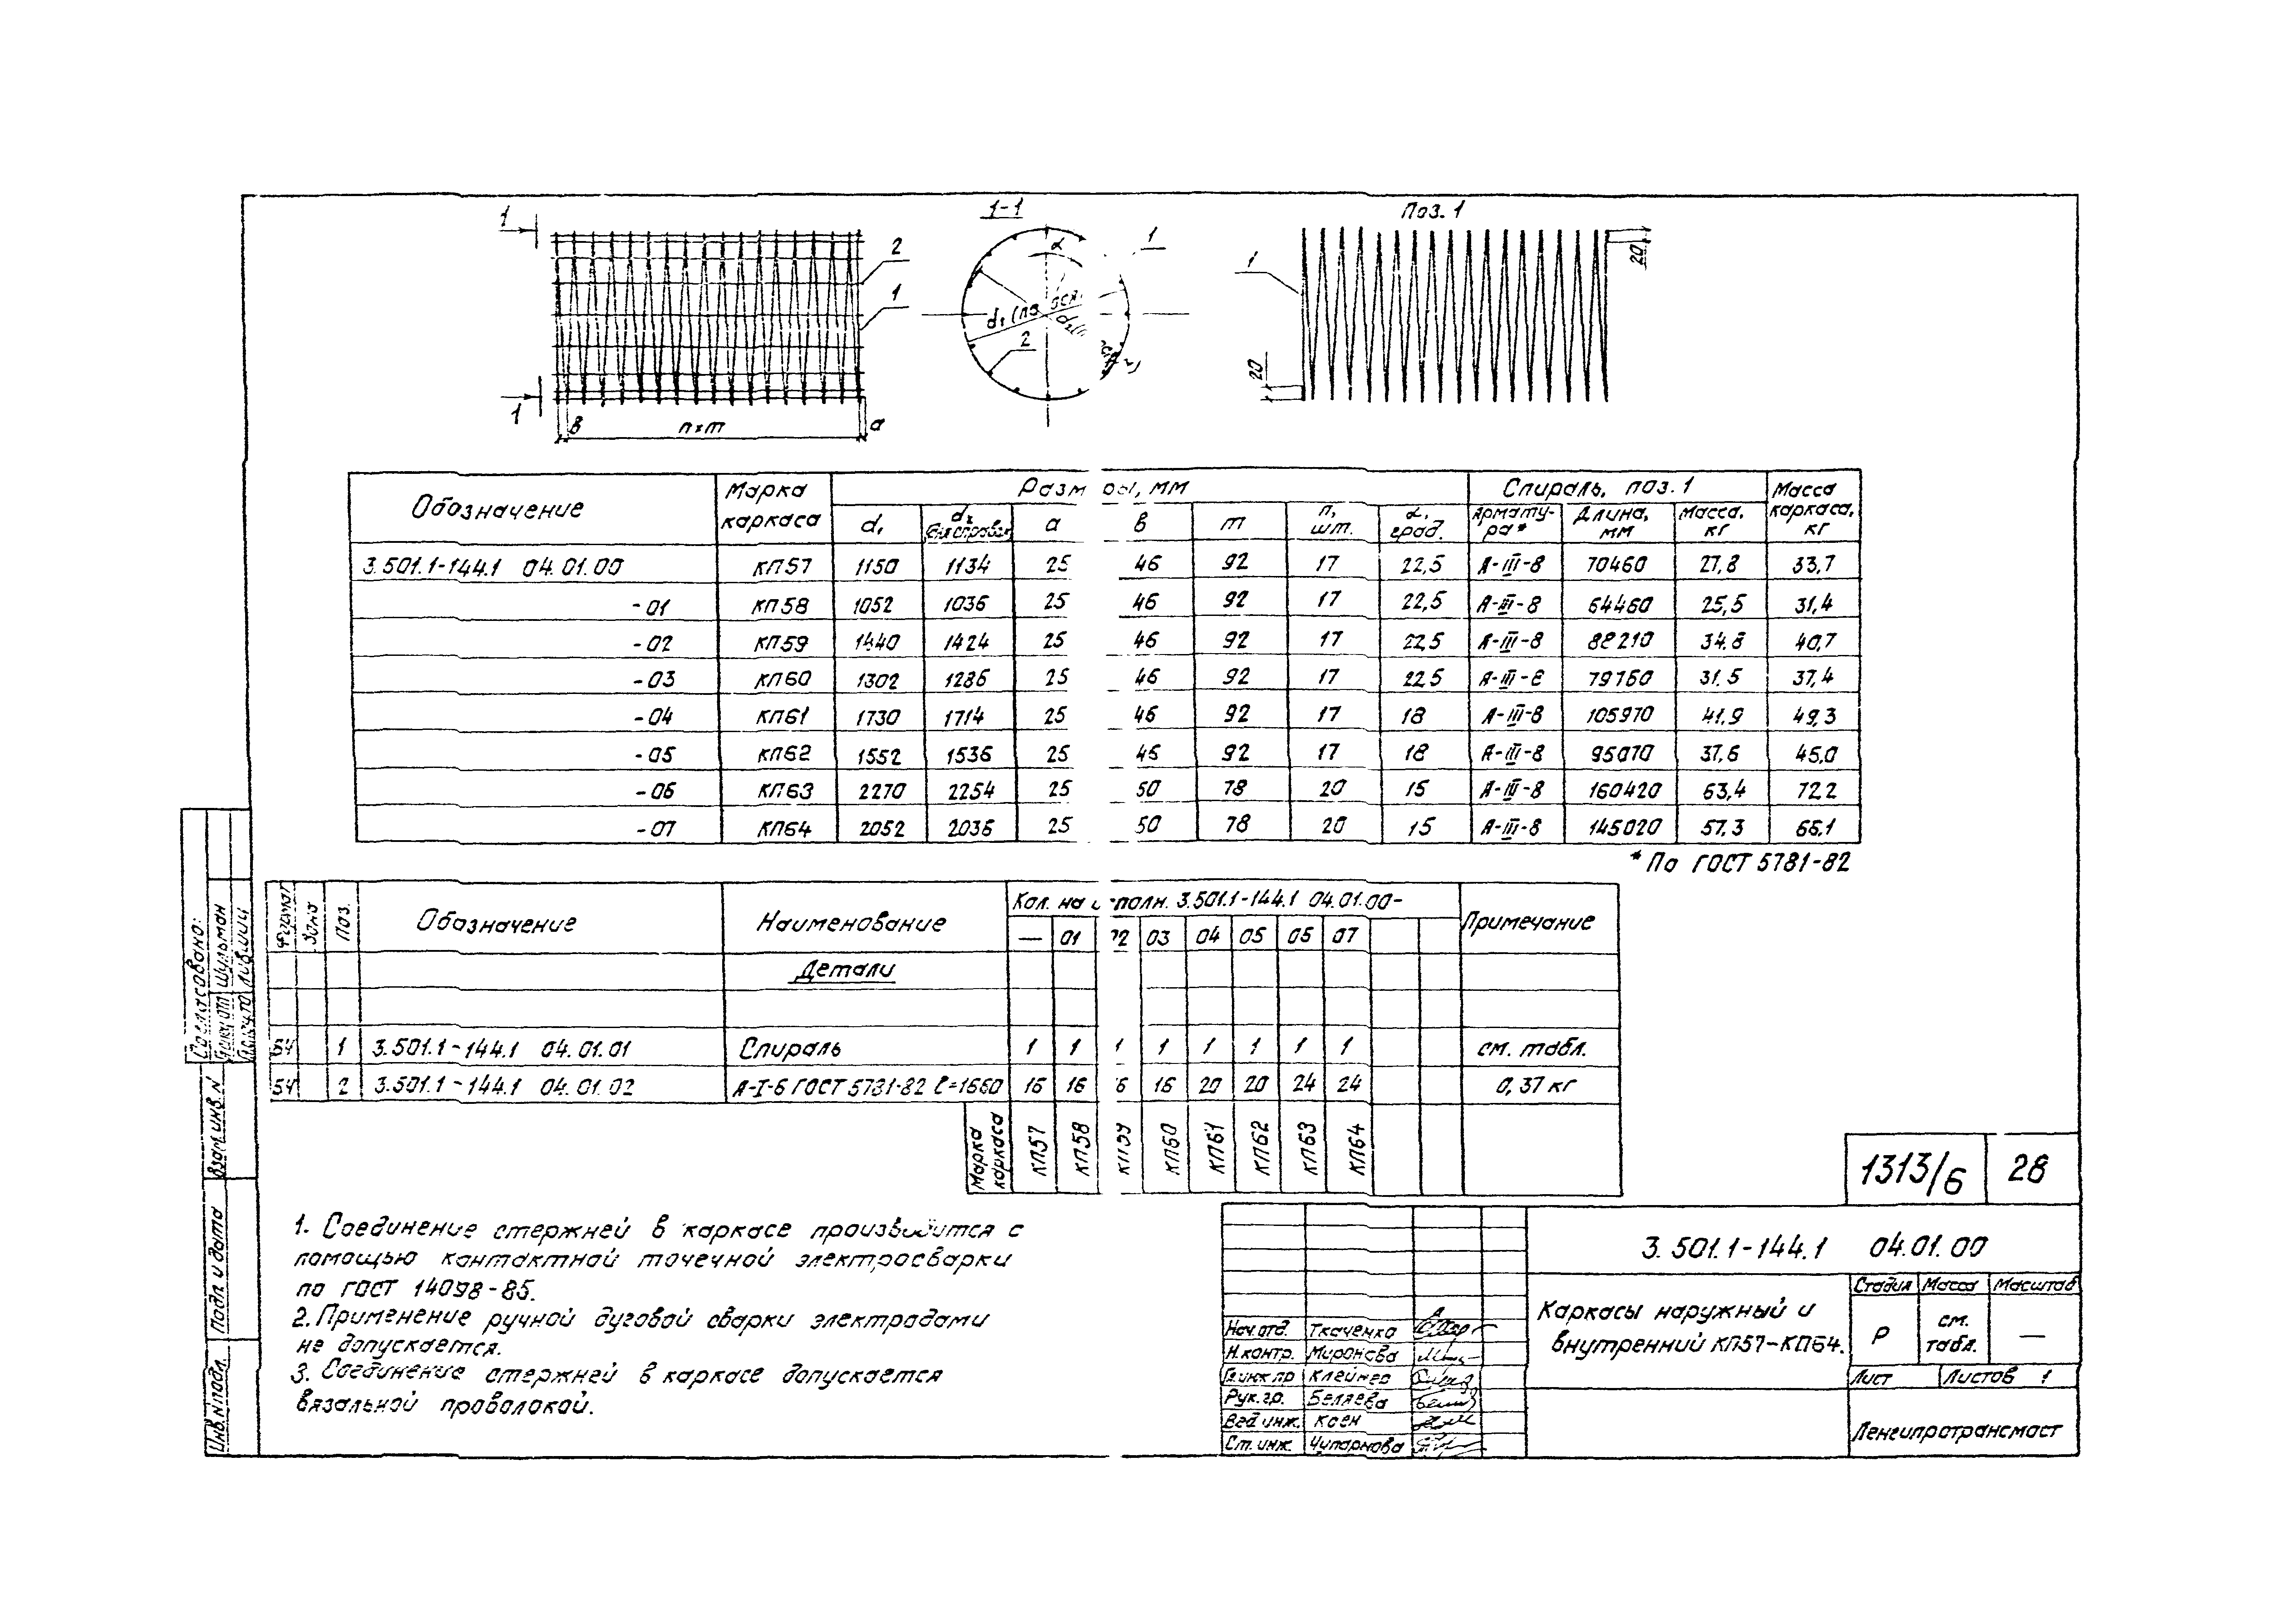 1
1
в
n×m
a
2
1
1-1
α
1
2
Поз. 1
1
20
20
Обозначение
Марка каркаса
Размеры, мм
Спираль, поз. 1
Масса каркаса, кг
d₁
d₂
a
в
m
n, шт.
α, град.
Арматура*
Длина, мм
Масса, кг
3.501.1-144.1 04.01.00 КП57 1150 1134 25 46 92 17 22,5 А-III-8 70460 27,8 33,7
-01 КП58 1052 1036 25 46 92 17 22,5 А-III-8 64460 25,5 31,4
-02 КП59 1440 1424 25 46 92 17 22,5 А-III-8 88210 34.8 40,7
-03 КП60 1302 1286 25 46 92 17 22,5 А-III-8 79760 31.5 37,4
-04 КП61 1730 1714 25 46 92 17 18 А-III-8 105970 41.9 49,3
-05 КП62 1552 1536 25 46 92 17 18 А-III-8 95070 37,6 45,0
-06 КП63 2270 2254 25 50 78 20 15 А-III-8 160420 63,4 72,2
-07 КП64 2052 2036 25 50 78 20 15 А-III-8 145020 57.3 66,1
* По ГОСТ 5781-82
Формат
Зона
Поз.
Обозначение
Наименование
Кол. на исполн. 3.501.1-144.1 04.01.00-
Примечание
— 01 02 03 04 05 06 07
Детали
БЧ 1 3.501.1-144.1 04.01.01 Спираль 1 1 1 1 1 1 1 1 см. табл.
БЧ 2 3.501.1-144.1 04.01.02 А-I-6 ГОСТ 5781-82 ℓ=1660 16 16 16 16 20 20 24 24 0,37 кг
Марка каркаса
КП57 КП58 КП59 КП60 КП61 КП62 КП63 КП64
1. Соединение стержней в каркасе производится с
помощью контактной точечной электросварки
по ГОСТ 14098-85.
2. Применение ручной дуговой сварки электродами
не допускается.
3. Соединение стержней в каркасе допускается
вязальной проволокой.
1313/6
28
3.501.1-144.1 04.01.00
Каркасы наружный и
внутренний КП57-КП64.
Стадия Масса Масштаб
Р
см. табл.
—
Лист
Листов 1
Ленгипротрансмост
Нач.отд. Ткаченко
Н.контр. Миронова
Гл.инж.пр Клейнер
Рук.гр. Беляева
Вед.инж. Коен
Ст.инж. Чупарнова
Согласовано:
Шульман
Лившиц
Взам.инв.N
Подп и дата
Инв.N подл.